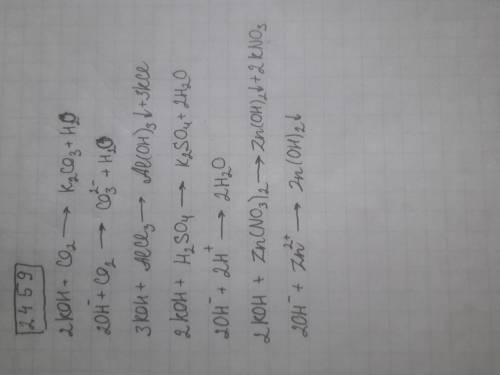 2459
2KOH + CO₂ → K₂CO₃ + H₂O
2OH⁻ + CO₂ → CO₃²⁻ + H₂O
3KOH + AlCl₃ → Al(OH)₃↓ + 3KCl
2KOH + H₂SO₄ → K₂SO₄ + 2H₂O
2OH⁻ + 2H⁺ → 2H₂O
2KOH + Zn(NO₃)₂ → Zn(OH)₂↓ + 2KNO₃
2OH⁻ + Zn²⁺ → Zn(OH)₂↓